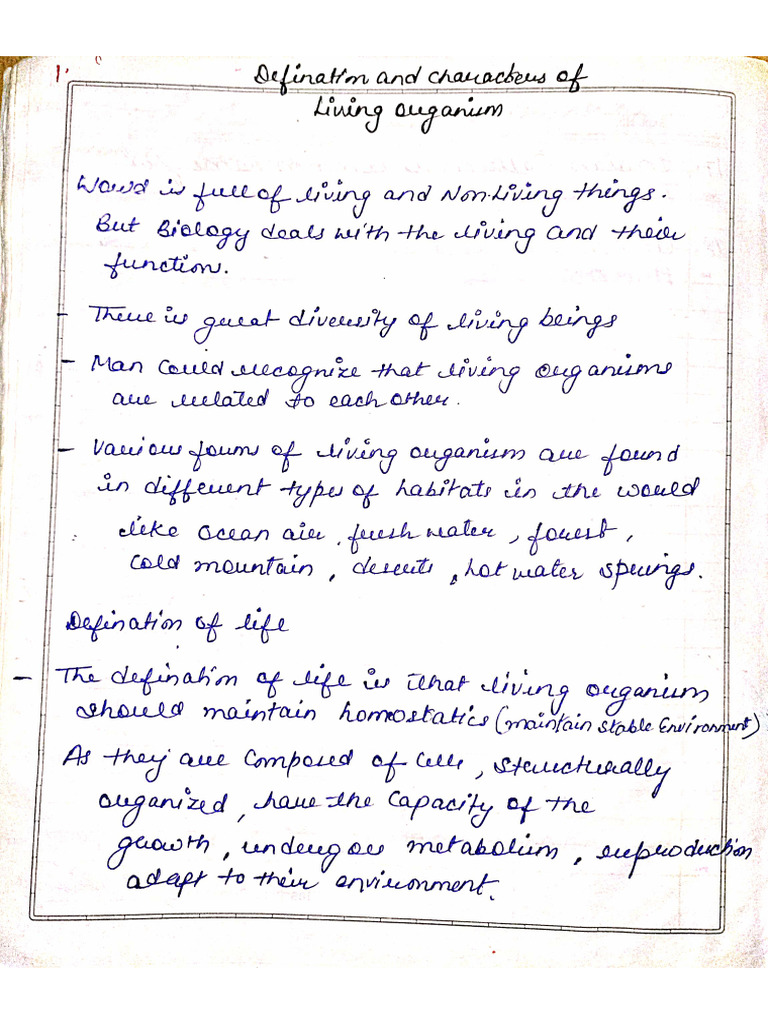 1.
Defination and characters of
Living organism
World is full of living and Non-Living things.
But Biology deals with the living and their
function.
- There is great diversity of living beings
- Man could recognize that living organisms
are related to each other.
- Various forms of living organism are found
in different types of habitats in the world
like Ocean air, fresh water, forest,
cold mountain, deserts, hot water springs.
Defination of life
- The defination of life is that living organism
should maintain homostatics (maintain stable Environment)
As they are composed of cells, structurally
organized, have the capacity of the
growth, undergoes metabolism, reproduction
adapt to their environment.